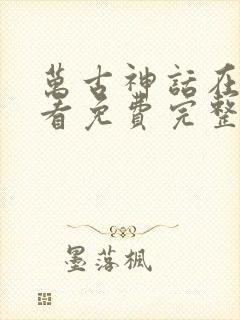 萬古神話在
看免費完整
墨落楓